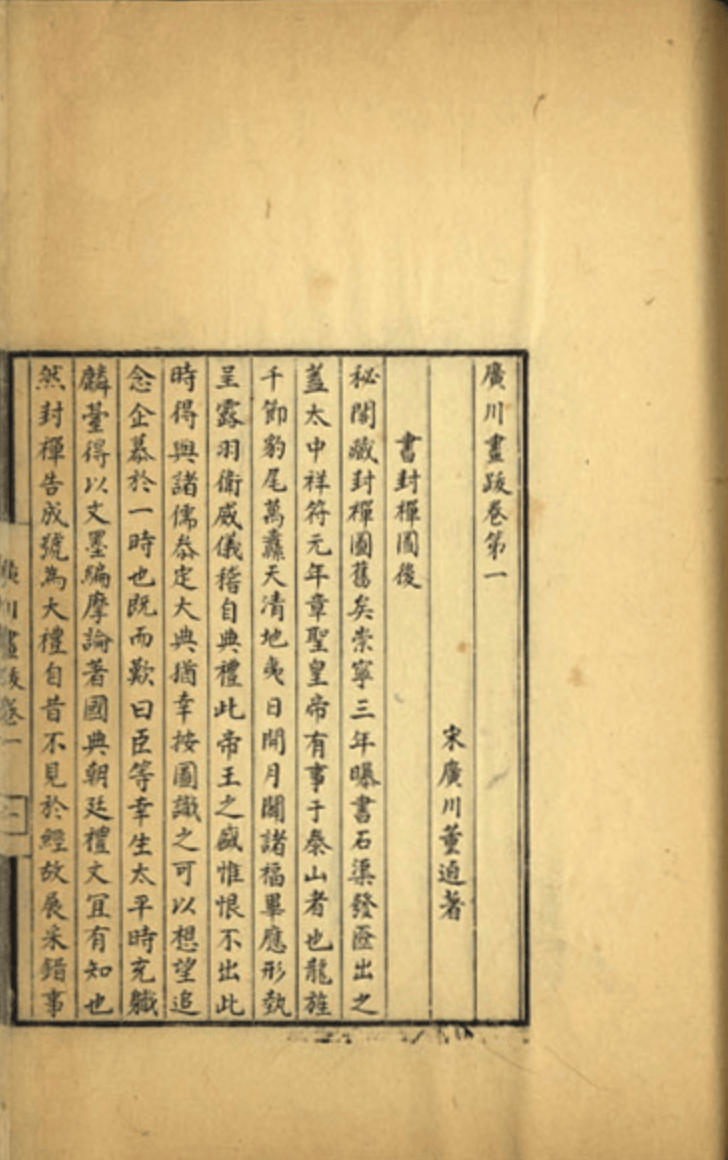 廣川畫跋卷第一
宋廣川董逌著
書封禪圖後
秘閣藏封禪圖舊矣崇寧三年曝書石渠發匵出之
蓋太中祥符元年章聖皇帝有事于泰山者也龍旌
千節豹尾萬纛天清地夷日開月闢諸福畢應形埶
呈露羽衛威儀稽自典禮此帝王之盛惟恨不出此
時得與諸儒叅定大典猶幸按圖識之可以想望追
念企慕於一時也既而歎曰臣等幸生太平時充職
麟臺得以文墨編摩論著國典朝廷禮文宜有知也
然封禪告成號為大禮自昔不見於經故展采錯事
廣川畫跋卷一